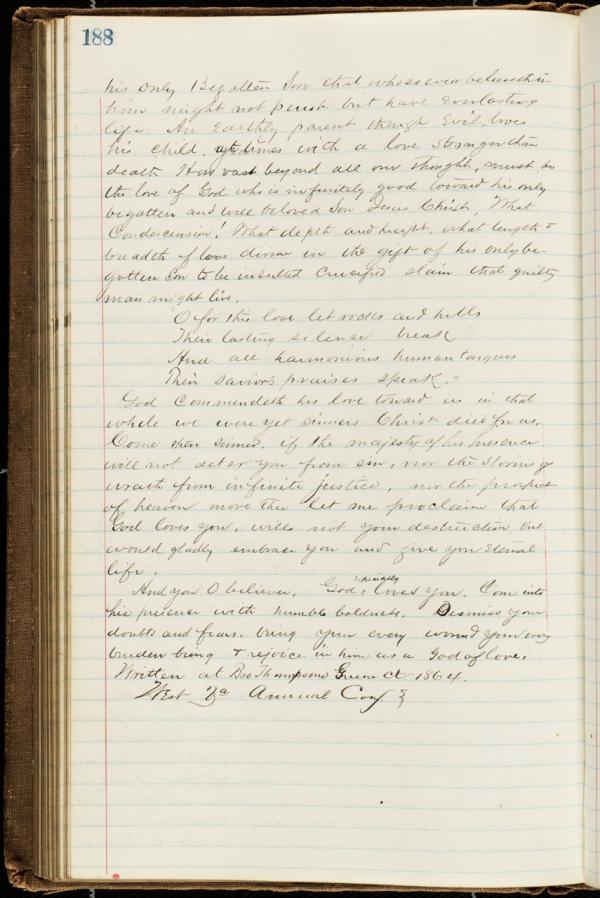 188
his only Begotten Son that whosoever believeth in
him might not perish but have everlasting
life. An Earthly parent though Evil, loves
his child, at times with a love stronger than
death. How vast beyond all our thought, must be
the love of God who is infinitely good toward his only
begotten and well beloved Son Jesus Christ, What
Condescension! What depth and height, what length &
breadth of love divine in the gift of his only be-
gotten Son to be insulted Crucified slain that guilty
man might live.
"O for this love let rocks and hills
Their lasting silence break
And all harmonious human tongues
Their Savior's praises speak."
God Commendeth his love toward us in that
while we were yet sinners Christ died for us.
Come then sinner, if the majesty of his presence
will not deter you from sin, nor the storm of
wrath from infinite justice, nor the prospect
of heaven move thee let me proclaim that
God loves you, wills not your destruction but
would gladly embrace you and give you Eternal
life.
And you O believer, God specially loves you. Come into
his presence with humble boldness. Dismiss your
doubts and fears. bring your every wound your every
burden bring & rejoice in him as a God of love.
Written at Bro Thompsons Green Ct 1864.
West Va Annual Conf